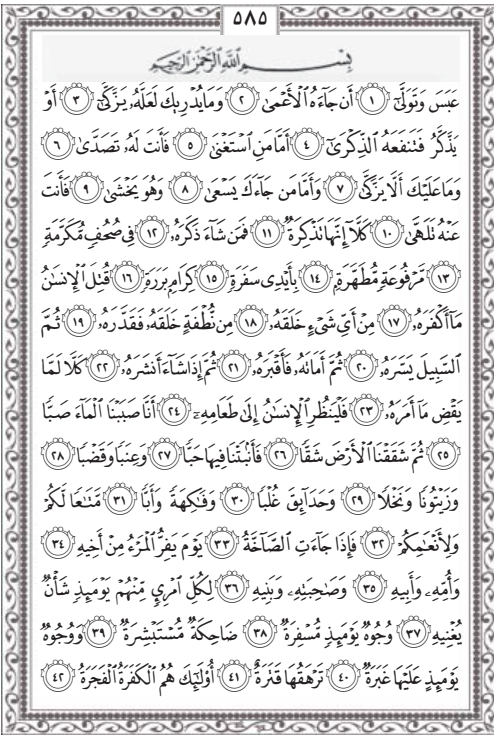 ٥٨٥
بِسْمِ اللَّهِ الرَّحْمَٰنِ الرَّحِيمِ
عَبَسَ وَتَوَلَّىٰٓ ١ أَن جَآءَهُ ٱلْأَعْمَىٰ ٢ وَمَا يُدْرِيكَ لَعَلَّهُۥ يَزَّكَّىٰٓ ٣ أَوْ
يَذَّكَّرُ فَتَنفَعَهُ ٱلذِّكْرَىٰٓ ٤ أَمَّا مَنِ ٱسْتَغْنَىٰ ٥ فَأَنتَ لَهُۥ تَصَدَّىٰ ٦
وَمَا عَلَيْكَ أَلَّا يَزَّكَّىٰ ٧ وَأَمَّا مَن جَآءَكَ يَسْعَىٰ ٨ وَهُوَ يَخْشَىٰ ٩ فَأَنتَ
عَنْهُ تَلَهَّىٰ ١٠ كَلَّآ إِنَّهَا تَذْكِرَةٌ ١١ فَمَن شَآءَ ذَكَرَهُۥ ١٢ فِى صُحُفٍ مُّكَرَّمَةٍ
١٣ مَّرْفُوعَةٍ مُّطَهَّرَةٍۭ ١٤ بِأَيْدِى سَفَرَةٍ ١٥ كِرَامٍۭ بَرَرَةٍ ١٦ قُتِلَ ٱلْإِنسَٰنُ
مَآ أَكْفَرَهُۥ ١٧ مِنْ أَىِّ شَىْءٍ خَلَقَهُۥ ١٨ مِن نُّطْفَةٍ خَلَقَهُۥ فَقَدَّرَهُۥ ١٩ ثُمَّ
ٱلسَّبِيلَ يَسَّرَهُۥ ٢٠ ثُمَّ أَمَاتَهُۥ فَأَقْبَرَهُۥ ٢١ ثُمَّ إِذَا شَآءَ أَنشَرَهُۥ ٢٢ كَلَّا لَمَّا
يَقْضِ مَآ أَمَرَهُۥ ٢٣ فَلْيَنظُرِ ٱلْإِنسَٰنُ إِلَىٰ طَعَامِهِۦٓ ٢٤ أَنَّا صَبَبْنَا ٱلْمَآءَ صَبًّا
٢٥ ثُمَّ شَقَقْنَا ٱلْأَرْضَ شَقًّا ٢٦ فَأَنۢبَتْنَا فِيهَا حَبًّا ٢٧ وَعِنَبًا وَقَضْبًا ٢٨
وَزَيْتُونًا وَنَخْلًا ٢٩ وَحَدَآئِقَ غُلْبًا ٣٠ وَفَٰكِهَةً وَأَبًّا ٣١ مَّتَٰعًا لَّكُمْ
وَلِأَنْعَٰمِكُمْ ٣٢ فَإِذَا جَآءَتِ ٱلصَّآخَّةُ ٣٣ يَوْمَ يَفِرُّ ٱلْمَرْءُ مِنْ أَخِيهِ ٣٤
وَأُمِّهِۦ وَأَبِيهِ ٣٥ وَصَٰحِبَتِهِۦ وَبَنِيهِ ٣٦ لِكُلِّ ٱمْرِئٍ مِّنْهُمْ يَوْمَئِذٍ شَأْنٌ
يُغْنِيهِ ٣٧ وُجُوهٌ يَوْمَئِذٍ مُّسْفِرَةٌ ٣٨ ضَاحِكَةٌ مُّسْتَبْشِرَةٌ ٣٩ وَوُجُوهٌ
يَوْمَئِذٍ عَلَيْهَا غَبَرَةٌ ٤٠ تَرْهَقُهَا قَتَرَةٌ ٤١ أُو۟لَٰٓئِكَ هُمُ ٱلْكَفَرَةُ ٱلْفَجَرَةُ ٤٢